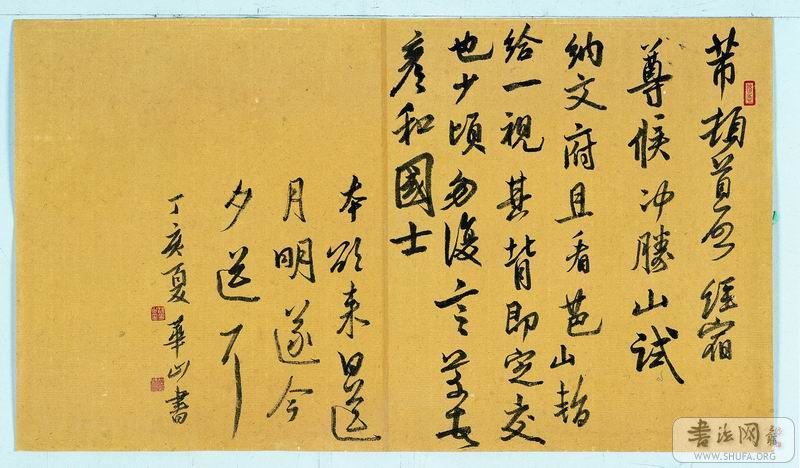 芾頓首再啓經宿
尊候冲勝山試
納文府且看芭山暫
給一視其背即定交
也少頃勿復言芾頓首
彥和國士
本欲來日送
月明遂今
夕送耳
丁亥夏 華山書
書法網
WWW.SHUFA.ORG